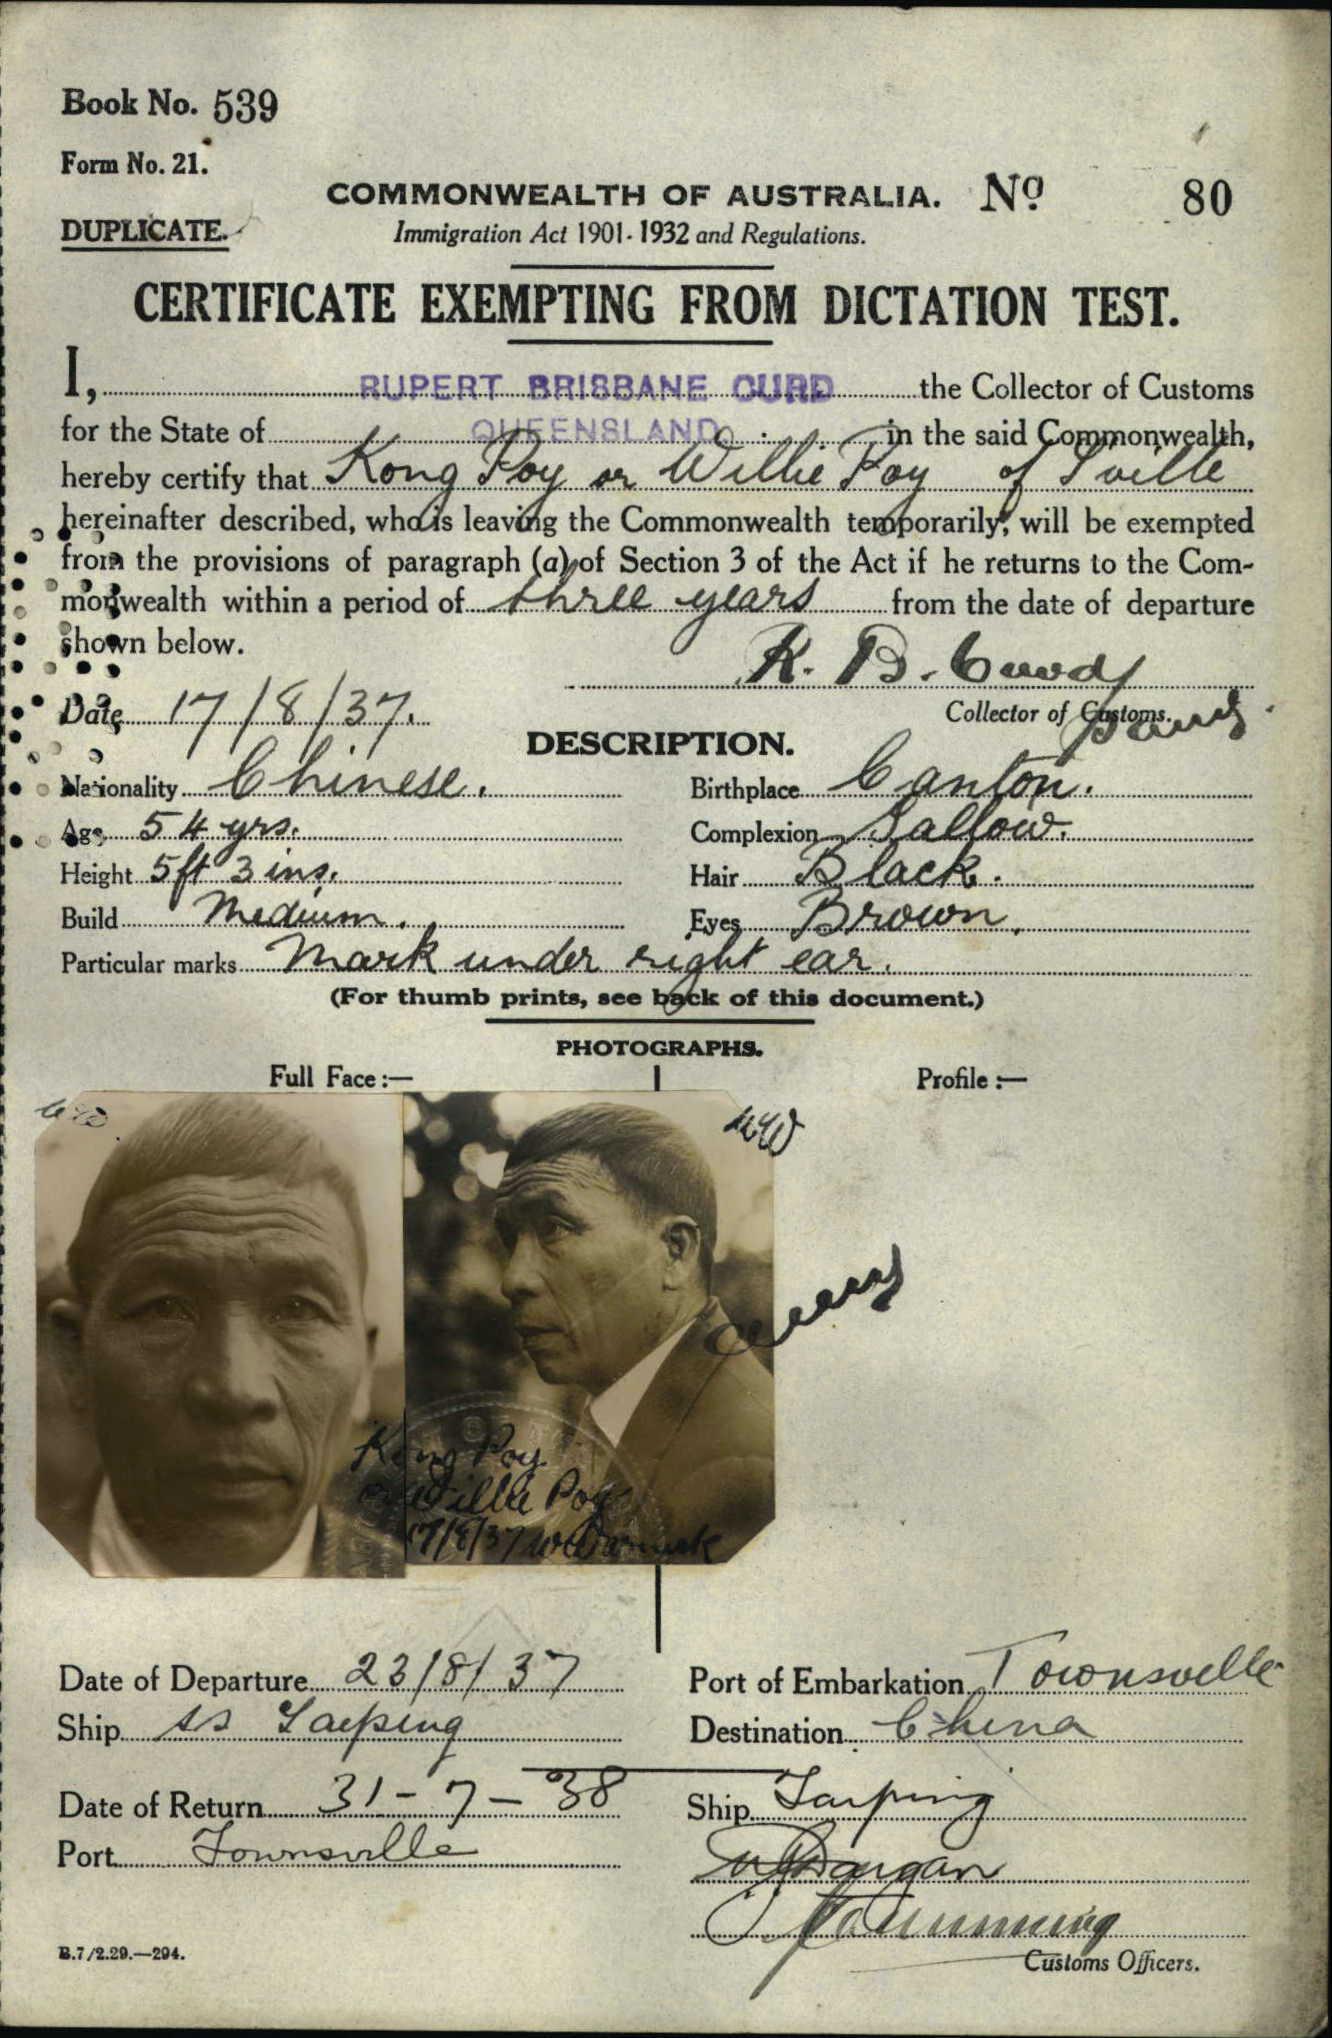 Book No. 539
Form No. 21.
COMMONWEALTH OF AUSTRALIA. No 80
DUPLICATE.
Immigration Act 1901-1932 and Regulations.
CERTIFICATE EXEMPTING FROM DICTATION TEST.
I, RUPERT BRISBANE CURD the Collector of Customs
for the State of QUEENSLAND in the said Commonwealth,
hereby certify that Kong Poy or Willie Poy of T'ville
hereinafter described, who is leaving the Commonwealth temporarily, will be exempted
from the provisions of paragraph (a) of Section 3 of the Act if he returns to the Com-
monwealth within a period of three years from the date of departure
shown below.
R. B. Curd
Date 17/8/37. Collector of Customs.
DESCRIPTION.
Nationality Chinese. Birthplace Canton.
Age 54 yrs. Complexion Sallow.
Height 5ft 3 ins. Hair Black.
Build Medium. Eyes Brown.
Particular marks Mark under right ear.
(For thumb prints, see back of this document.)
PHOTOGRAPHS.
Full Face :— Profile :—
Kong Poy
or Willie Poy
17/8/37
Date of Departure 23/8/37 Port of Embarkation Townsville
Ship ss Taiping Destination China
Date of Return 31-7-38 Ship Taiping
Port Townsville
Customs Officers.
B.7/2.29.—294.